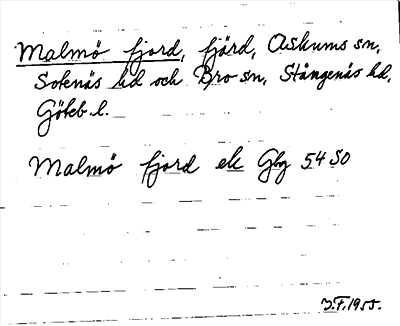 Malmö fjord, fjärd, Askums sn,
Sotenäs hd och Bro sn, Stångenäs hd,
Göteb. l.
Malmö fjord ek Gbg 54 SO
J.F. 1955.